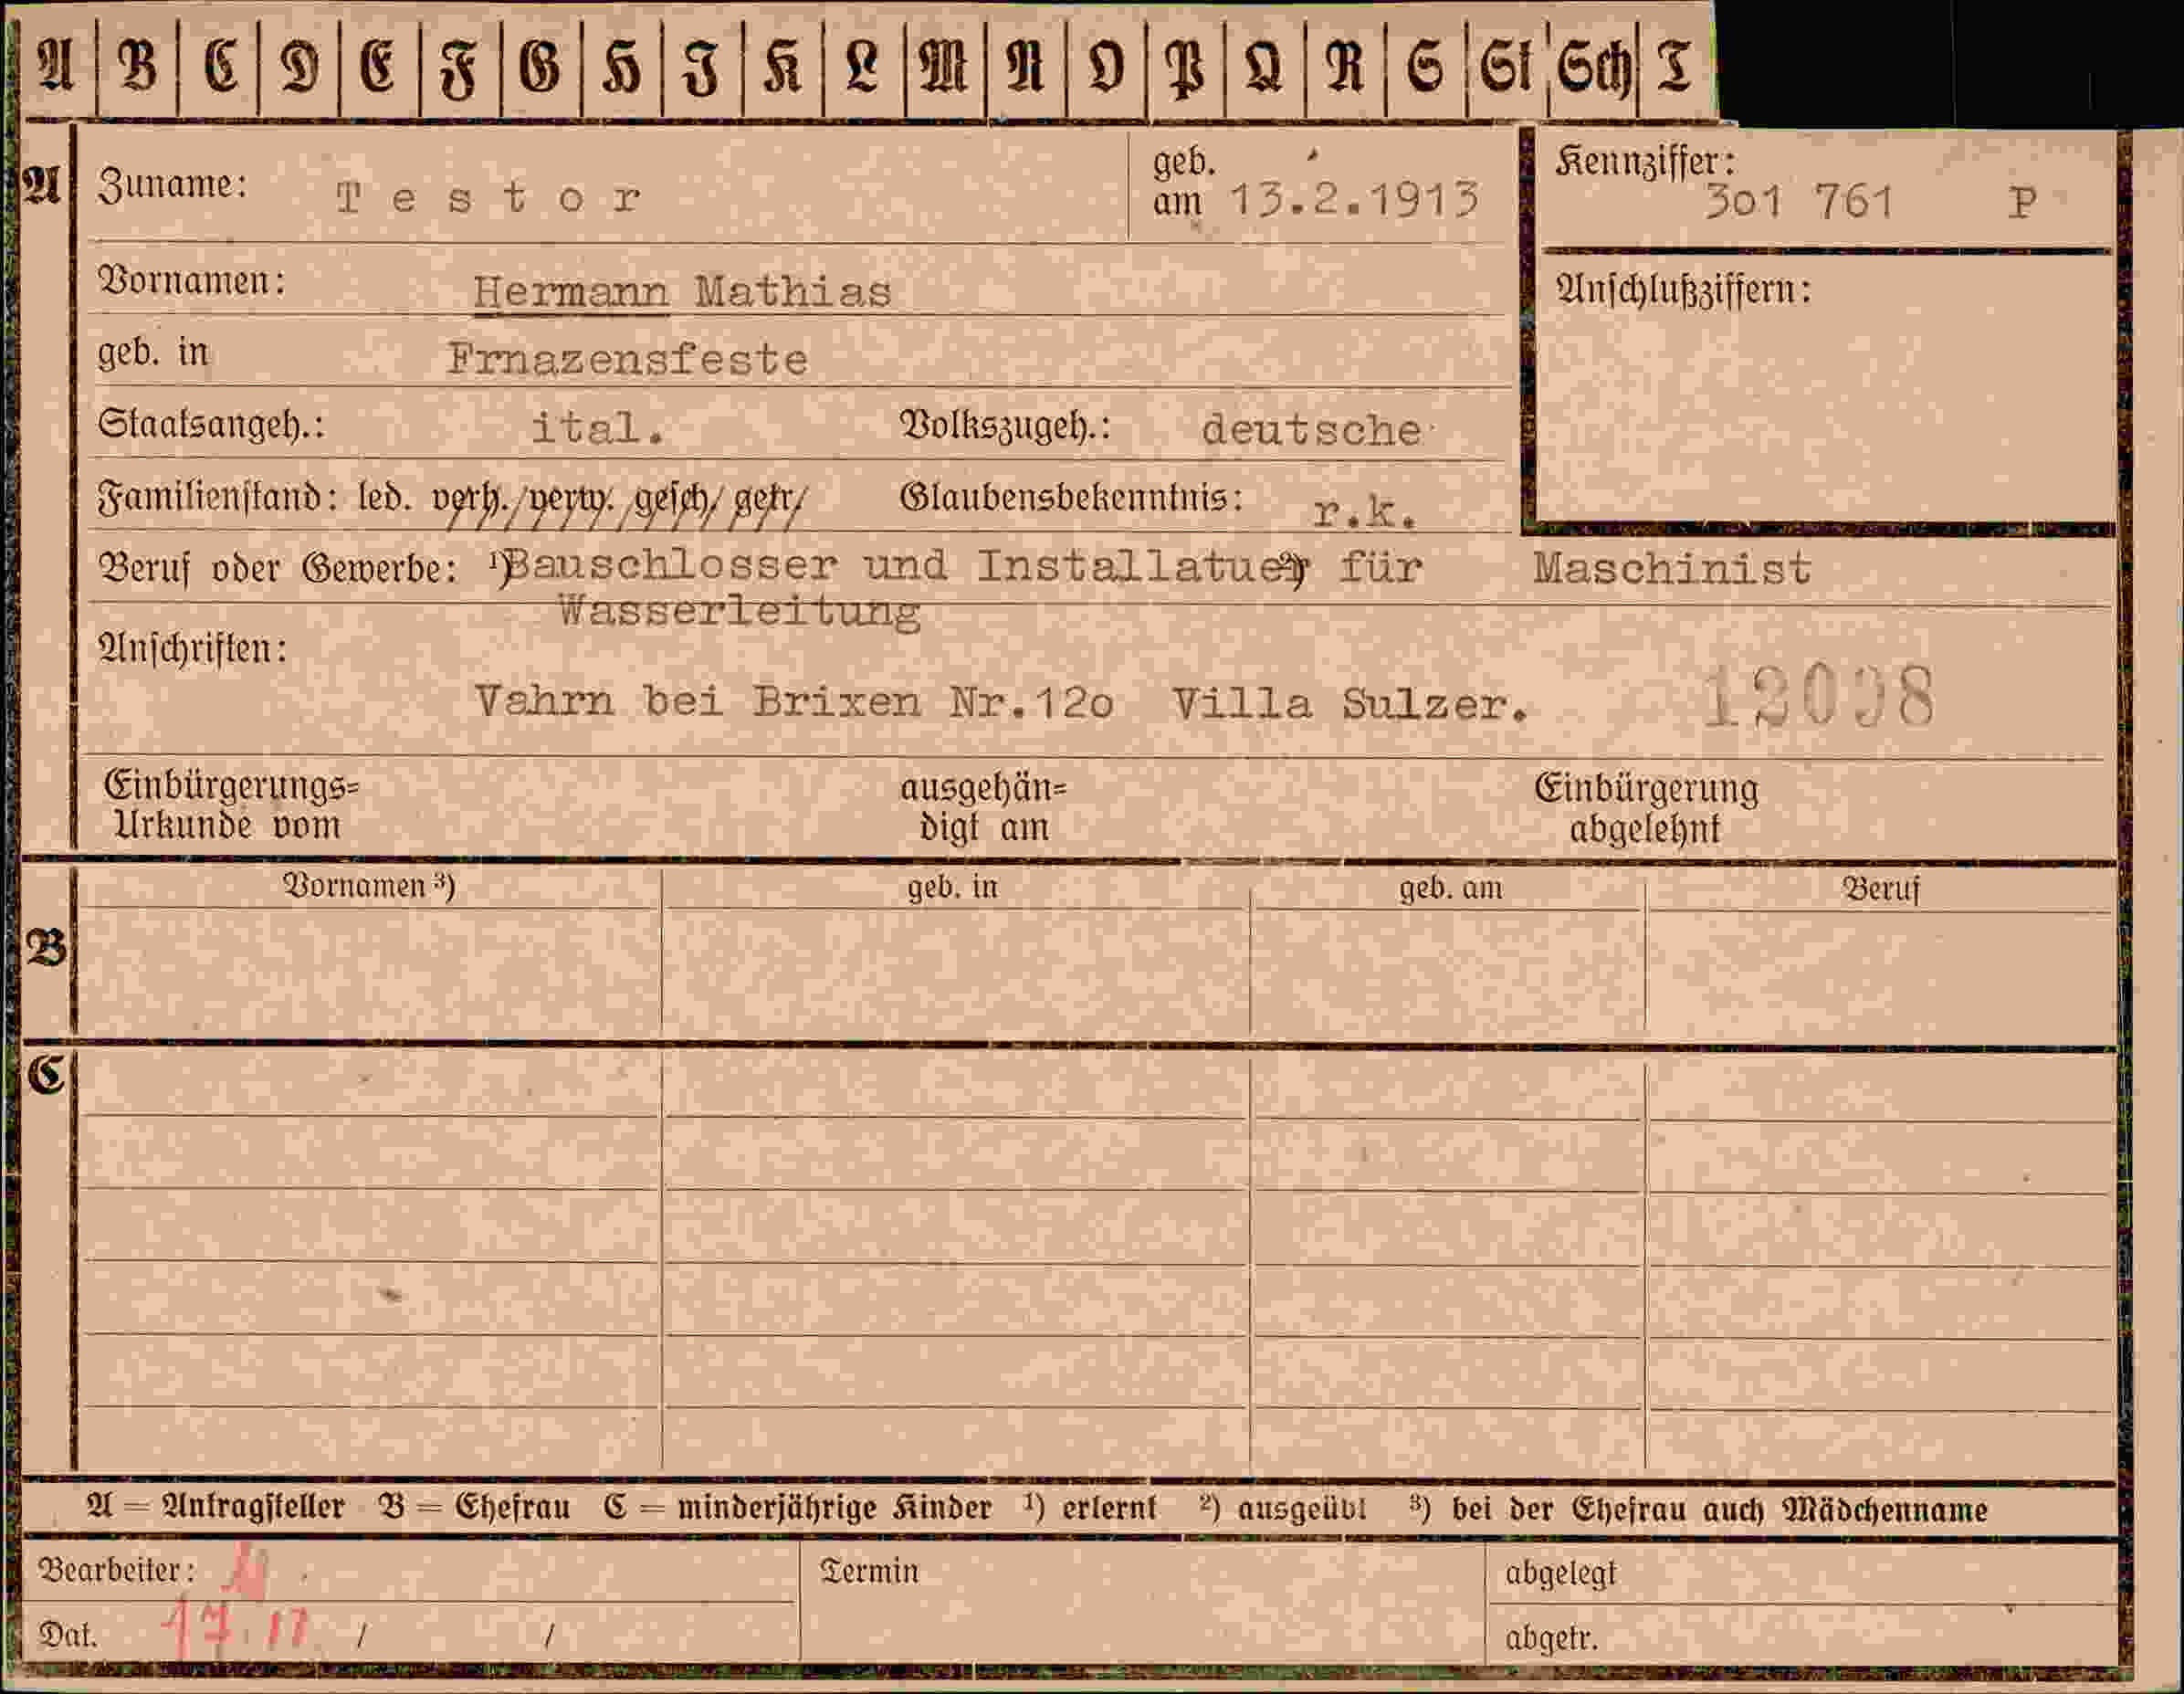 A B C D E F G H J K L M N O P Q R S St Sch T
A Zuname: Testor geb. am 13.2.1913 Kennziffer: 3o1 761 P
Vornamen: Hermann Mathias Anschlußziffern:
geb. in Frnazensfeste
Staatsangeh.: ital. Volkszugeh.: deutsche
Familienstand: led. verh. verw. gesch. getr. Glaubensbekenntnis: r.k.
Beruf oder Gewerbe: ¹) Bauschlosser und Installatuer ²) für Maschinist
Wasserleitung
Anschriften:
Vahrn bei Brixen Nr.12o Villa Sulzer.
Einbürgerungs= ausgehän= Einbürgerung
Urkunde vom digt am abgelehnt
Vornamen ³) geb. in geb. am Beruf
B
C
A = Antragsteller B = Ehefrau C = minderjährige Kinder ¹) erlernt ²) ausgeübt ³) bei der Ehefrau auch Mädchenname
Bearbeiter: Termin abgelegt
Dat. / / abgetr.